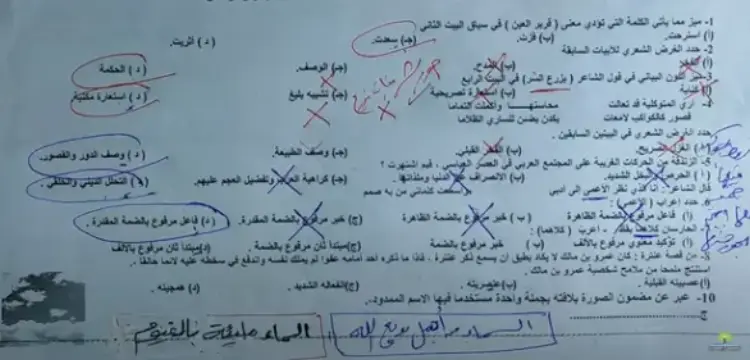 1- ميز مما يأتي الكلمة التي تؤدي معنى ( قرير العين ) في سياق البيت الثاني
(أ) استرحت. (ب) فزت. (جـ) سعدت. (د) أثريت.
2- حدد الغرض الشعري للأبيات السابقة
(ب) المدح. (جـ) الوصف. (د) الحكمة
اللون البياني في قول الشاعر ( يزرع الشر ) في البيت الرابع
(أ) كناية (ب) استعارة تصريحية (جـ) تشبيه بليغ (د) استعارة مكنية
4- أرى المتوكلية قد تعالت محاسنها وأكملت التماما
قصور كالكواكب لامعات يكدن يضئن للساري الظلاما
حدد الغرض الشعري في البيتين السابقين .
(أ) الغزل الصريح. (ب) الفخر القبلي. (جـ) وصف الطبيعة. (د) وصف الدور والقصور.
5- الزندقة من الحركات الغريبة على المجتمع العربي في العصر العباسي . فبم اشتهرت ؟
(أ) الحرص الشديد. (ب) الانصراف عن الدنيا وملذاتها. (جـ) كراهية العرب وتفضيل العجم عليهم. (د) التحلل الديني والخلقي .
قال الشاعر: أنا الذي نظر الأعمى إلى أدبي وأسمعت كلماتي من به صمم
6- حدد إعراب ( الأعمى ) :
(أ) فاعل مرفوع بالضمة الظاهرة (ب) خبر مرفوع بالضمة الظاهرة (ج) خبر مرفوع بالضمة المقدرة. (د) فاعل مرفوع بالضمة المقدرة .
7- الحارسان كلاهما يقظ . أعرب ( كلاهما ) :
(أ) توكيد معنوي مرفوع بالألف (ب) خبر مرفوع بالضمة (ج) مبتدأ ثان مرفوع بالضمة . (د) مبتدأ ثان مرفوع بالألف
8- من قصة عنترة : كان عمرو بن مالك لا يكاد يطيق أن يسمع ذكر عنترة ، فإذا ما ذكره أحد أمامه عفوا لم يملك نفسه واندفع في سخطه عليه لأنما حانقا .
استنتج ملمحا من ملامح شخصية عمرو بن مالك .
(أ) عصبيته القبلية . (ب) عنصريته (ج) انفعاله الشديد . (د) همجيته .
10- عبر عن مضمون الصورة بلافتة بجملة واحدة مستخدما فيها الاسم الممدود.
ج
السماء مليئة بالغيوم